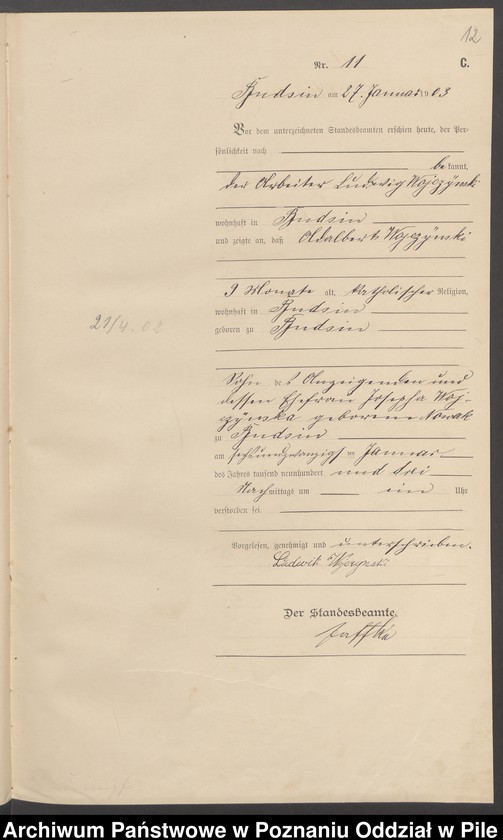 12
Nr. 11 C.
Budsin am 27. Januar 1903
Vor dem unterzeichneten Standesbeamten erschien heute, der Per-
sönlichkeit nach
bekannt,
der Arbeiter Ludwig Wojczynski
wohnhaft in Budsin
und zeigte an, daß Adalbert Wojczynski
9 Monate alt, katholischer Religion,
wohnhaft in Budsin
geboren zu Budsin
21/4. 02
Sohn des Anzeigenden und
dessen Ehefrau Josepha Woj-
czynska geborene Nowak
zu Budsin
am sechsundzwanzigsten Januar
des Jahres tausend neunhundert und drei
Nachmittags um ein Uhr
verstorben sei.
Vorgelesen, genehmigt und unterschrieben.
Ludwik
Der Standesbeamte.
Jaffke
Archiwum Państwowe w Poznaniu Oddział w Pile